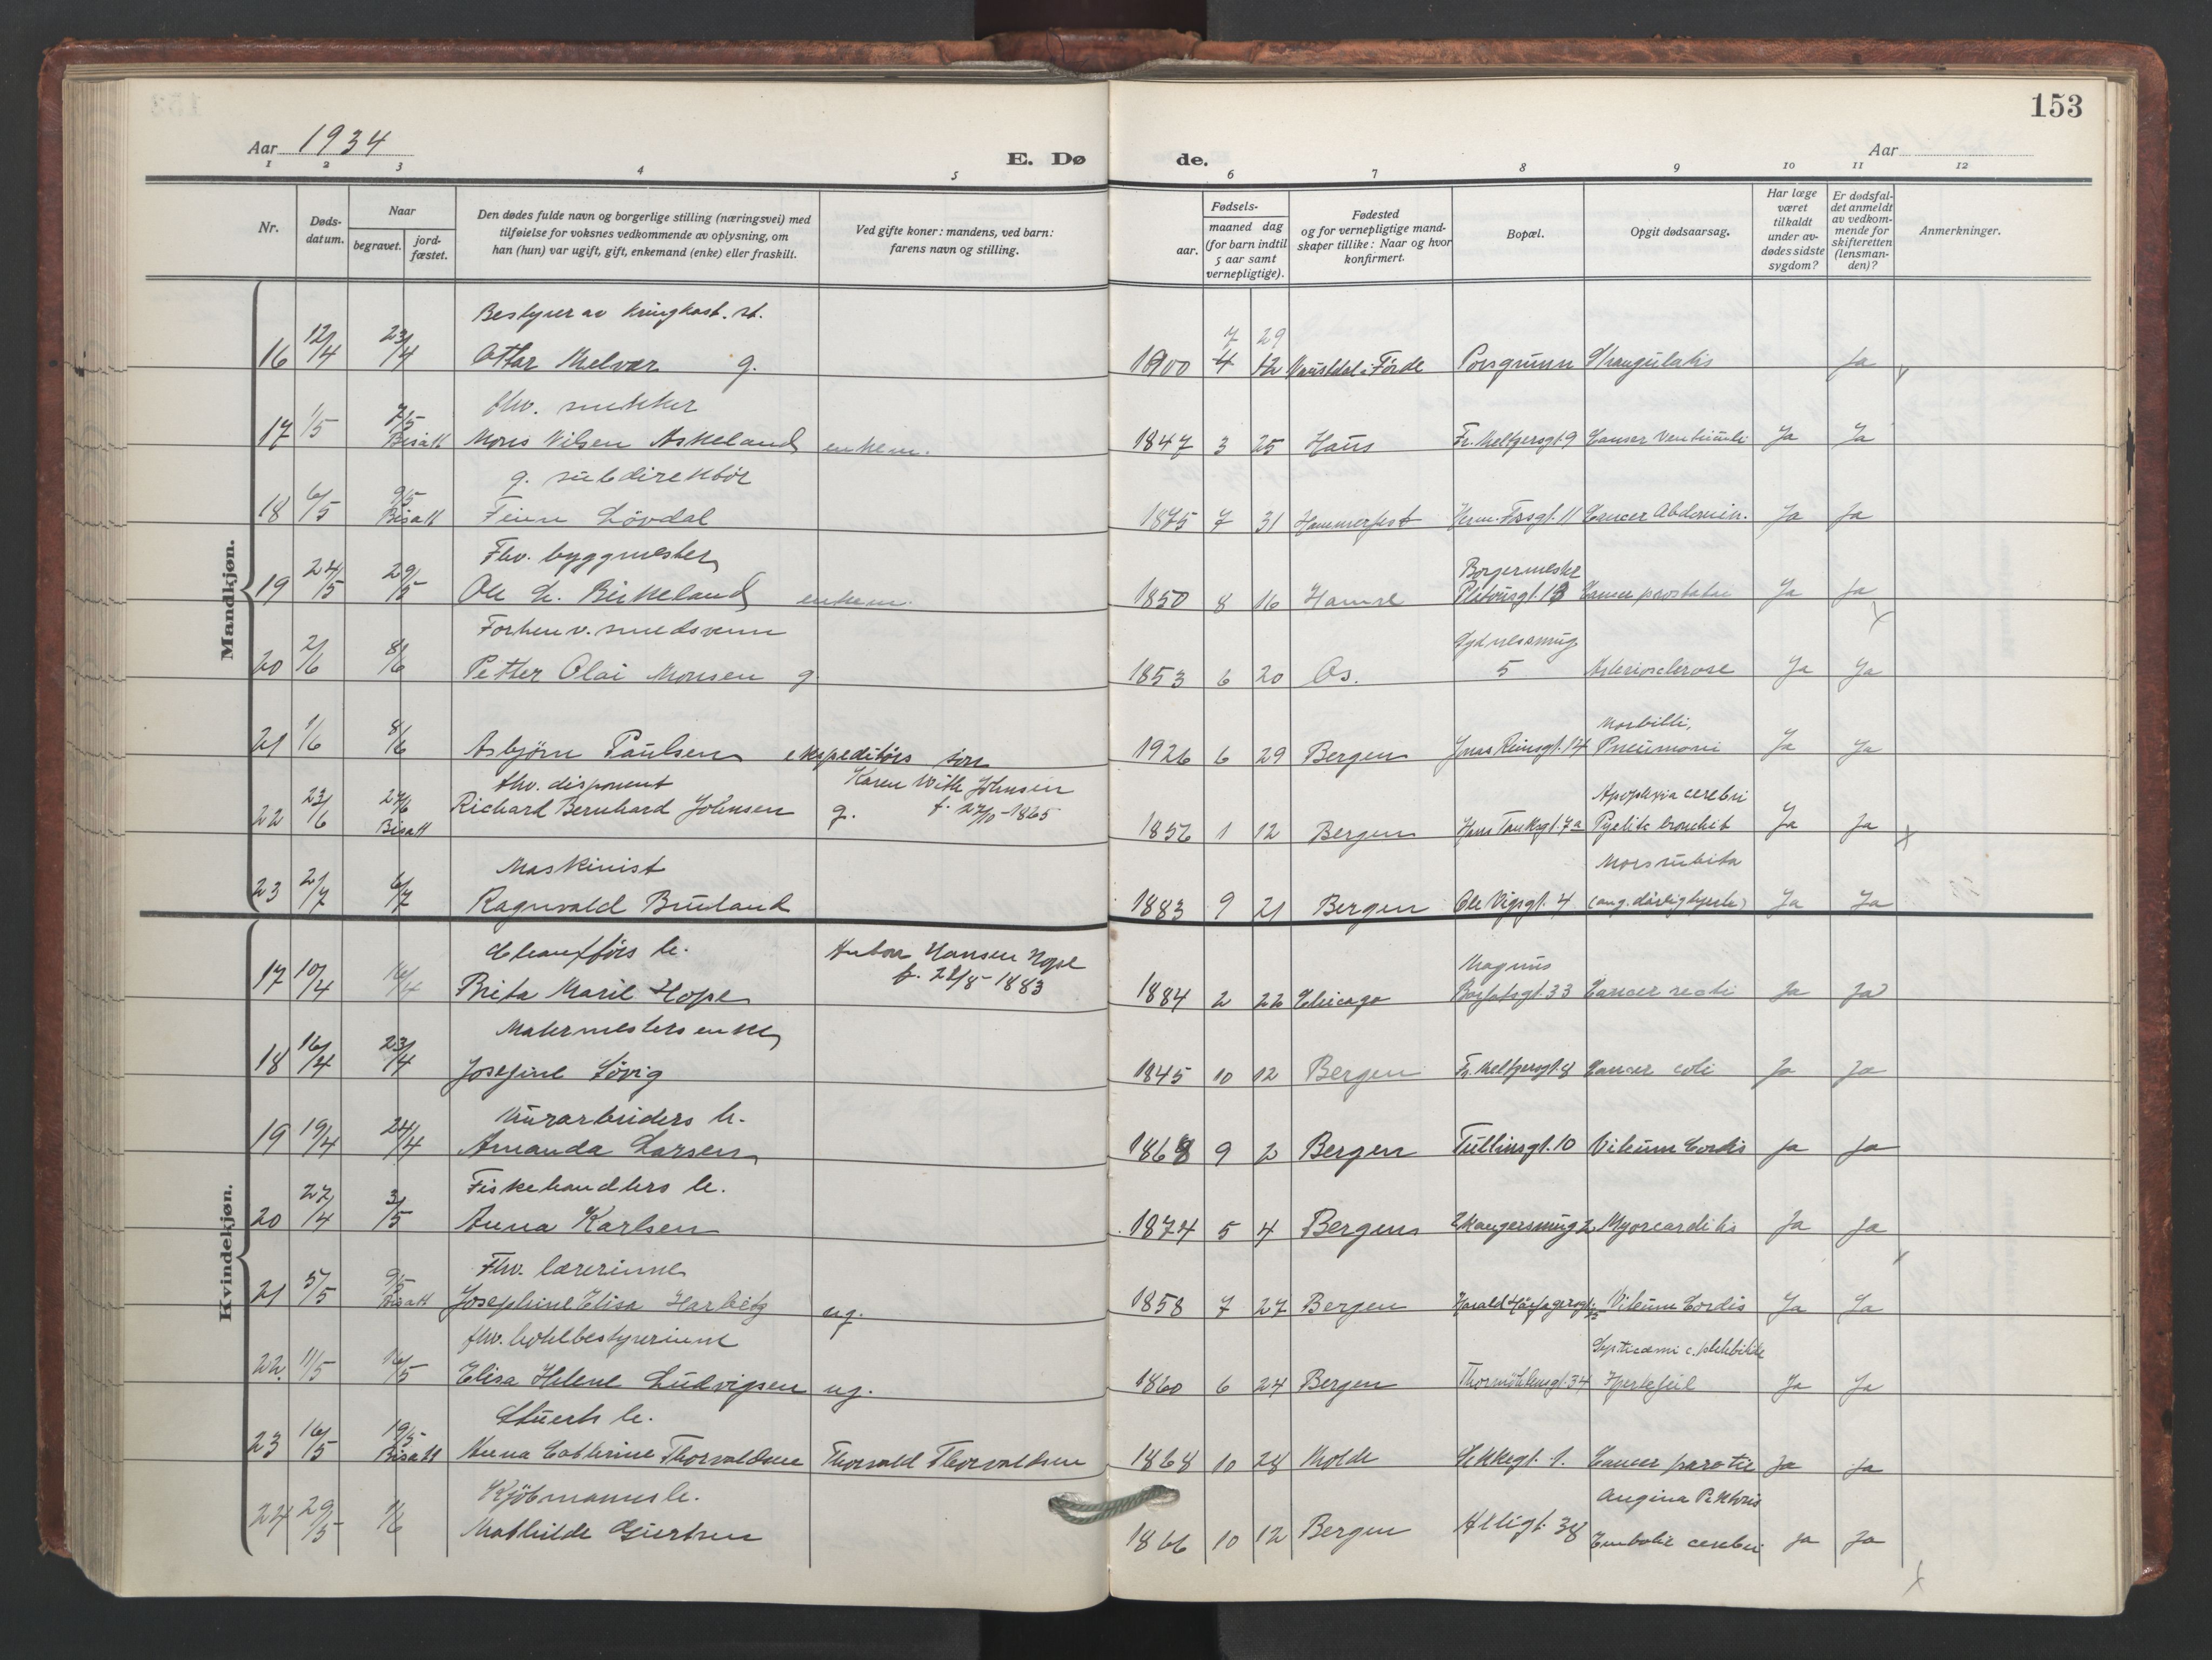 153
Aar 1934
E. Dø de.
Aar
1 2 3 4 5 6 7 8 9 10 11 12
Nr.
Døds-datum.
Naar
begravet.
jord-fæstet.
Den dødes fulde navn og borgerlige stilling (næringsvei) med
tilføielse for voksnes vedkommende av oplysning, om
han (hun) var ugift, gift, enkemand (enke) eller fraskilt.
Ved gifte koner: mandens, ved barn:
farens navn og stilling.
aar.
Fødsels-
maaned dag
(for barn indtil
5 aar samt
vernepligtige).
Fødested
og for vernepligtige mand-
skaper tillike: Naar og hvor
konfirmert.
Bopæl.
Opgit dødsaarsag.
Har læge
været
tilkaldt
under av-
dødes sidste
sygdom?
Er dødsfal-
det anmeldt
av vedkom-
mende for
skifteretten
(lensman-
den)?
Anmerkninger.
Mandkjøn.
Bestyrer av kringkast. st. 7 29
16 12/4 23/4 Ottar Melvær g. 1900 4 12 Naustdal i Førde Porsgrunn Strangulatis Ja
fhv. snekker
17 1/5 7/5 Bisatt Mons Nilsen Askeland enkem. 1847 3 25 Haus Fr. Meltzersgt. 9 Cancer Ventriculi Ja Ja
g. subdirektör
18 6/5 9/5 Bisatt Finn Lövdal 1875 7 31 Hammerfest Herm. Fossgt. 11 Cancer Abdomin. Ja Ja
Fhv. byggmester Borgermester
19 24/5 29/5 Ole L. Birkeland enkem. 1850 8 16 Hamre Platousgt. 13 Cancer prostatae Ja Ja
Forhenv. smedsvenn Sydnessmug
20 2/6 8/6 Petter Olai Monsen g. 1853 6 20 Os. 5 Arteriosclerose Ja Ja
Morbilli,
21 1/6 8/6 Asbjörn Paulsen ekspeditörs son 1926 6 29 Bergen Jonas Reinsgt. 14 Pneumoni Ja Ja
fhv. disponent Karen With Johnsen Apoplexia cerebri
22 23/6 27/6 Bisatt Richard Bernhard Johnsen g. f. 27/10-1865 1856 1 12 Bergen Hans Tanksgt. 7a Pyelit bronchit Ja Ja
Maskinist Mors subita
23 2/7 6/7 Ragnvald Bruland 1883 9 21 Bergen Ole Vigsgt. 4 (ang. dårlig hjerte) Ja Ja
Kvindekjøn.
Chauffförs h. Anton Hansen Hope Magnus
17 10/4 16/4 Brita Marie Hope f. 21/8-1883 1884 2 22 Chicago Barfotsgt. 33 Cancer recti Ja Ja
Malermesters enke
18 16/4 23/4 Josefine Lövig 1845 10 12 Bergen Fr. Meltzersgt. 8 Cancer coli Ja Ja
Murarbeiders h.
19 19/4 24/4 Amanda Larsen 1868 9 2 Bergen Tullinsgt. 10 Vitium Cordis Ja Ja
Fiskehandlers h.
20 27/4 3/5 Anna Karlsen 1874 5 4 Bergen Skangersmug 2 Myocarditis Ja Ja
Fhv. lærerinne
21 5/5 9/5 Bisatt Josephine Elisa Harbitz ug. 1858 7 27 Bergen Harald Hårfagersgt. Vitium Cordis Ja Ja
fhv. hotelbestyrerinne Septicæmi c. phlebitide
22. 11/5 16/5 Elisa Helene Ludvigsen ug. 1860 6 24 Bergen Thormöhlensgt. 34 Hjertefeil Ja Ja
Stuerts h.
23 16/5 19/5 Bisatt Anna Cathrine Thorvaldsen Thorvald Thorvaldsen 1868 10 28 Molde Hekkegt. 1. Cancer parotis Ja Ja
Kjöbmanns h. Angina Pektoris
24 29/5 1/6 Mathilde Giertsen 1866 10 12 Bergen Alligt. 38 Embolie cerebri Ja Ja